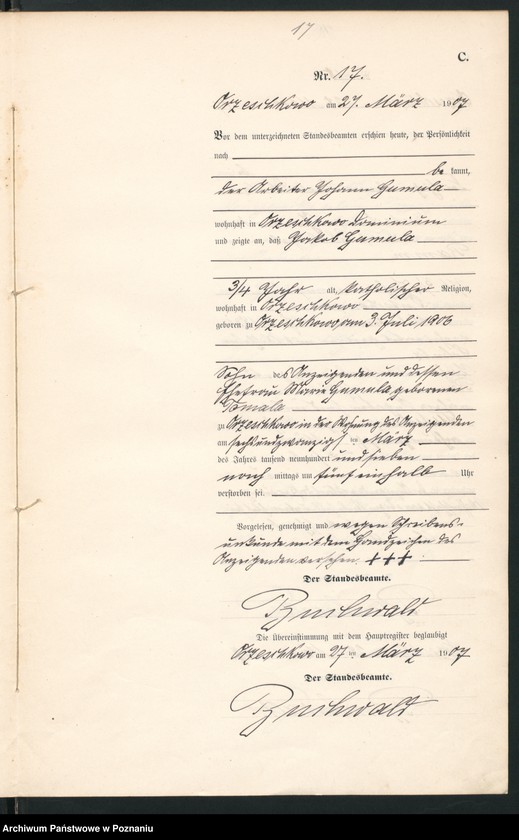 17
C.
Nr. 17.
Orzeschkowo am 27. März 1907
Vor dem unterzeichneten Standesbeamten erschien heute, der Persönlichkeit
nach
be kannt,
der Arbeiter Johann Gumula
wohnhaft in Orzeschkowo Dominium
und zeigte an, daß Jakob Gumula
3/4 Jahr alt, katholischer Religion,
wohnhaft in Orzeschkowo
geboren zu Orzeschkowo, am 3. Juli 1906
Sohn des Anzeigenden und dessen
Ehefrau Marie Gumula, geborenen
Tomala
zu Orzeschkowo in der Wohnung des Anzeigenden
am sechsundzwanzigsten März
des Jahres tausend neunhundert und sieben
nach mittags um fünf einhalb Uhr
verstorben sei.
Vorgelesen, genehmigt und wegen Schreibens-
unkunde mit dem Handzeichen des
Anzeigenden versehen. +++
Der Standesbeamte.
Buchwald
Die Übereinstimmung mit dem Hauptregister beglaubigt
Orzeschkowo am 27 ten März 1907
Der Standesbeamte.
Buchwald
Archiwum Państwowe w Poznaniu